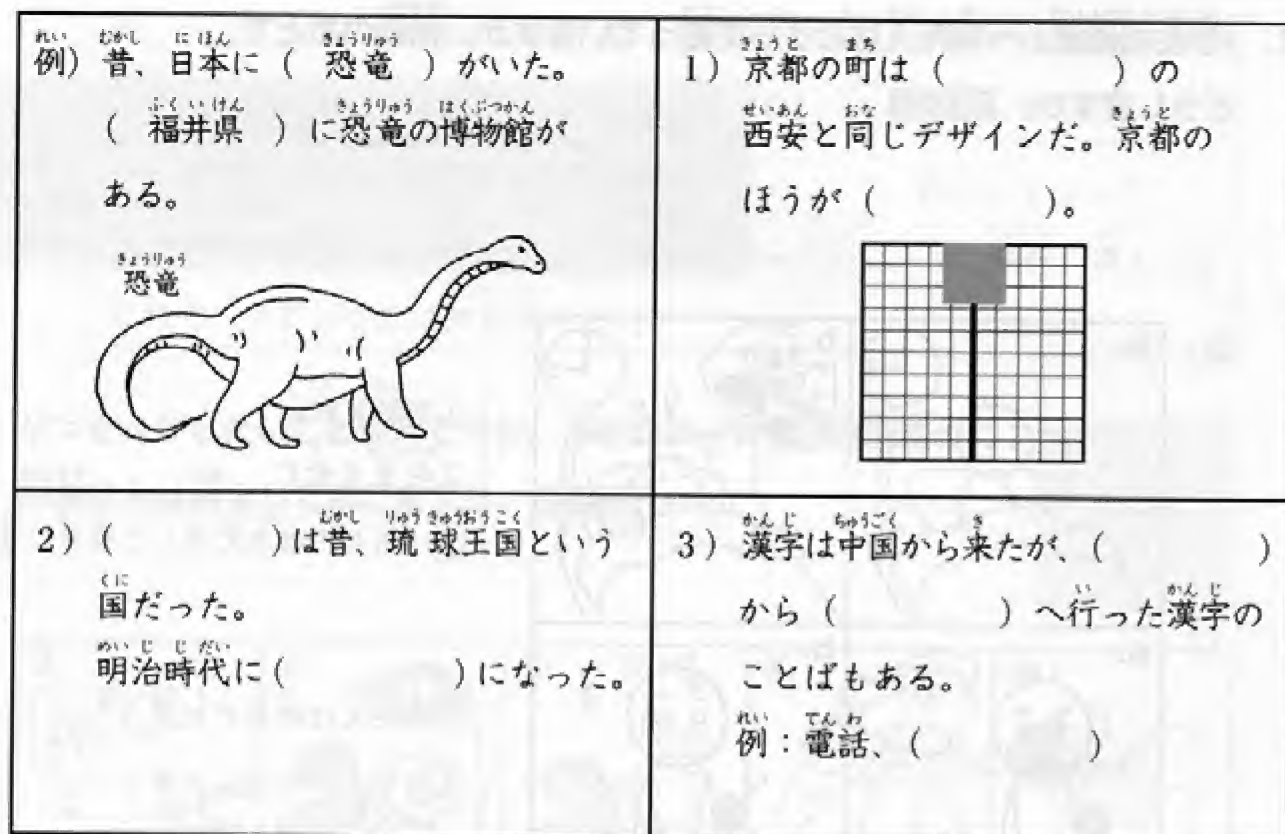 例) 昔、日本に ( 恐竜 ) がいた。
( 福井県 ) に恐竜の博物館が
ある。
恐竜
1) 京都の町は (　　　　) の
西安と同じデザインだ。京都の
ほうが (　　　　)。
2) (　　　　)は昔、琉球王国という
国だった。
明治時代に (　　　　)になった。
3) 漢字は中国から来たが、(　　　　)
から (　　　　) へ行った漢字の
ことばもある。
例：電話、(　　　　)